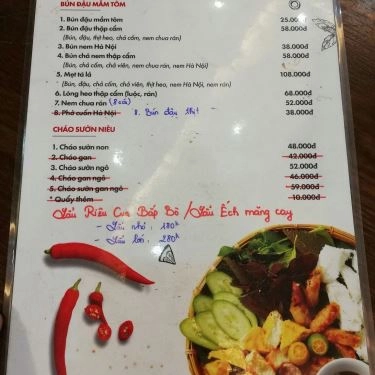 BÚN ĐẬU MẮM TÔM
1. Bún đậu mắm tôm 25.000đ
2. Bún đậu thập cẩm 58.000đ
(Bún, đậu, thịt heo, chả cốm, nem chua rán)
3. Bún nem Hà Nội 38.000đ
4. Bún chả nem thập cẩm 58.000đ
(Bún, chả cốm, chả viên, nem chua rán, nem Hà Nội)
5. Mẹt tá lả 108.000đ
(Bún, đậu, chả cốm, chả viên, nem Hà Nội, nem rán)
6. Lòng heo thập cẩm (luộc, rán) 68.000đ
7. Nem chua rán (8 cái) 52.000đ
8. Phở cuốn Hà Nội 8. Bún đậu thịt 38.000đ
CHÁO SƯỜN NIÊU
1. Cháo sườn non 48.000đ
2. Cháo gan 42.000đ
3. Cháo sườn ngô 52.000đ
4. Cháo gan ngô 46.000đ
5. Cháo sườn gan ngô 59.000đ
* Quẩy thêm 10.000đ
Lẩu Riêu Cua Bắp Bò / Lẩu Ếch măng cay
- Lẩu nhỏ, 180k
- Lẩu lớn, 280k